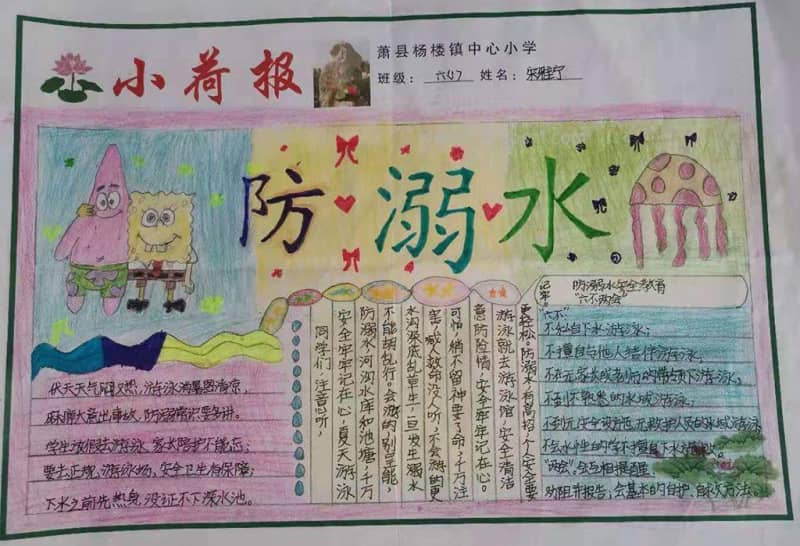 小荷报
萧县杨楼镇中心小学
班级：六(4) 姓名：
防溺水
防溺水安全教育
"六不两会"
伏天天气闷又热，游泳消暑图清凉，
麻痹大意出事故，防溺常识要多讲。
学生放假去游泳，家长陪护不能忘；
要去正规游泳场，安全卫生有保障；
下水之前先热身，没证不下深水池。
同学们，注意听，
安全牢牢记在心，夏天游泳
防溺水，河沟水库和池塘，千万
不能胡乱行。会游的别呈能，
水沟深底乱草生，一旦发生溺水
害，喊人救命没人听，不会游的更
可怕，稍不留神要了命，千万注
意防险情，安全牢牢记在心。
游泳就去游泳馆，安全清洁
更轻松。防溺水有高招，个人安全要
"六不"
不私自下水游泳；
不擅自与他人结伴游泳；
不在无家长或老师的带领下游泳；
不到不熟悉的水域游泳；
不到无安全设施、无救护人员的水域游泳
不会水性的学生不擅自下水施救。
"两会"，会互相提醒、
劝阻并报告，会基本的自护、自救方法。